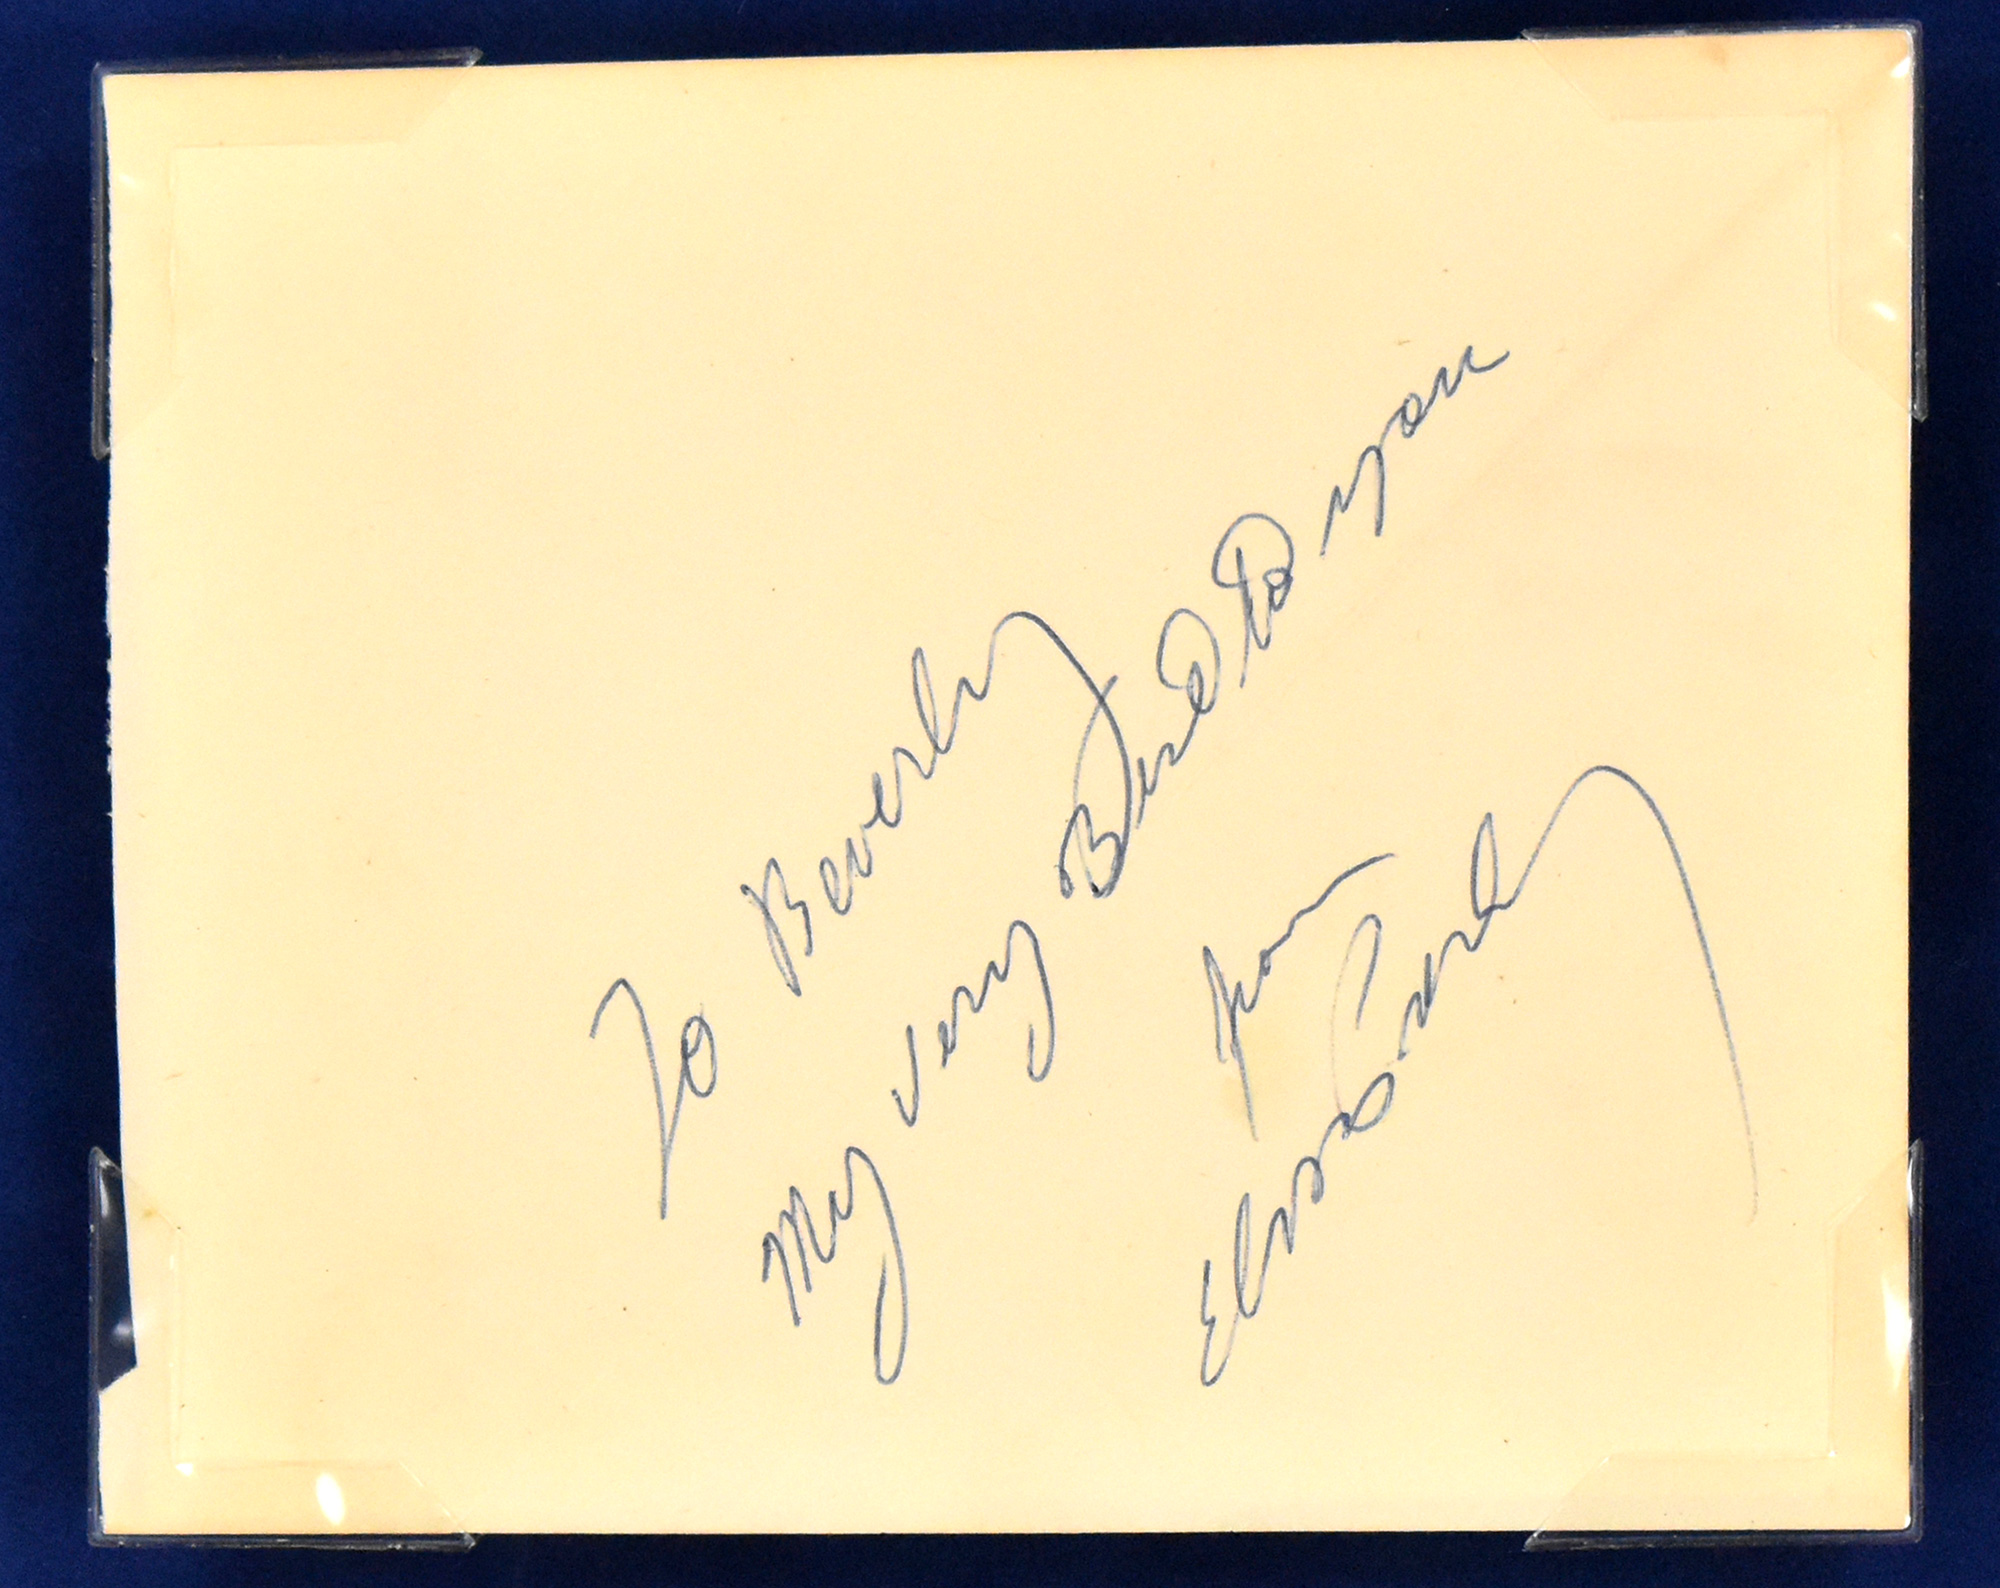 To Beverly
My very Best to you
from
Elvis Presley